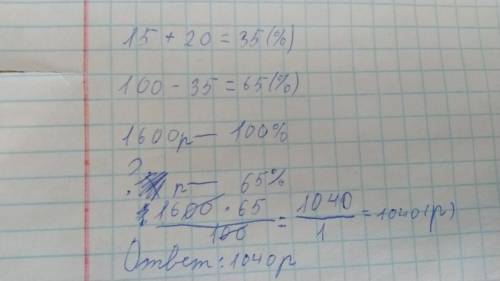 15 + 20 = 35 (%)
100 - 35 = 65 (%)
1600 р — 100%
? р — 65%
1600 · 65 / 100 = 1040 / 1 = 1040 (р)
Ответ: 1040 р